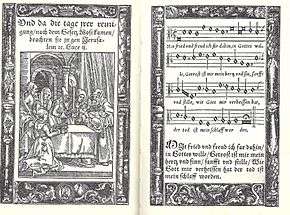 Und da die tage jrer reini-
gung/ nach dem Gesetz Mosi kamen/
brachten sie jn gen Jerusa-
lem ꝛc. Luce ij.
Mit fried und freud ich far dahin, in Gottes wil-
le, Getrost ist mir mein hertz und sinn, sanfft
und stille, Wie Gott mir verheissen hat,
der tod ist mein schlaff wor den.
Mit fried und freud ich far dahin/
in Gottes wille/ Getrost ist mir mein
hertz und sinn/ sanfft und stille/ Wie
Gott mir verheissen hat der tod ist
mein schlaff worden.